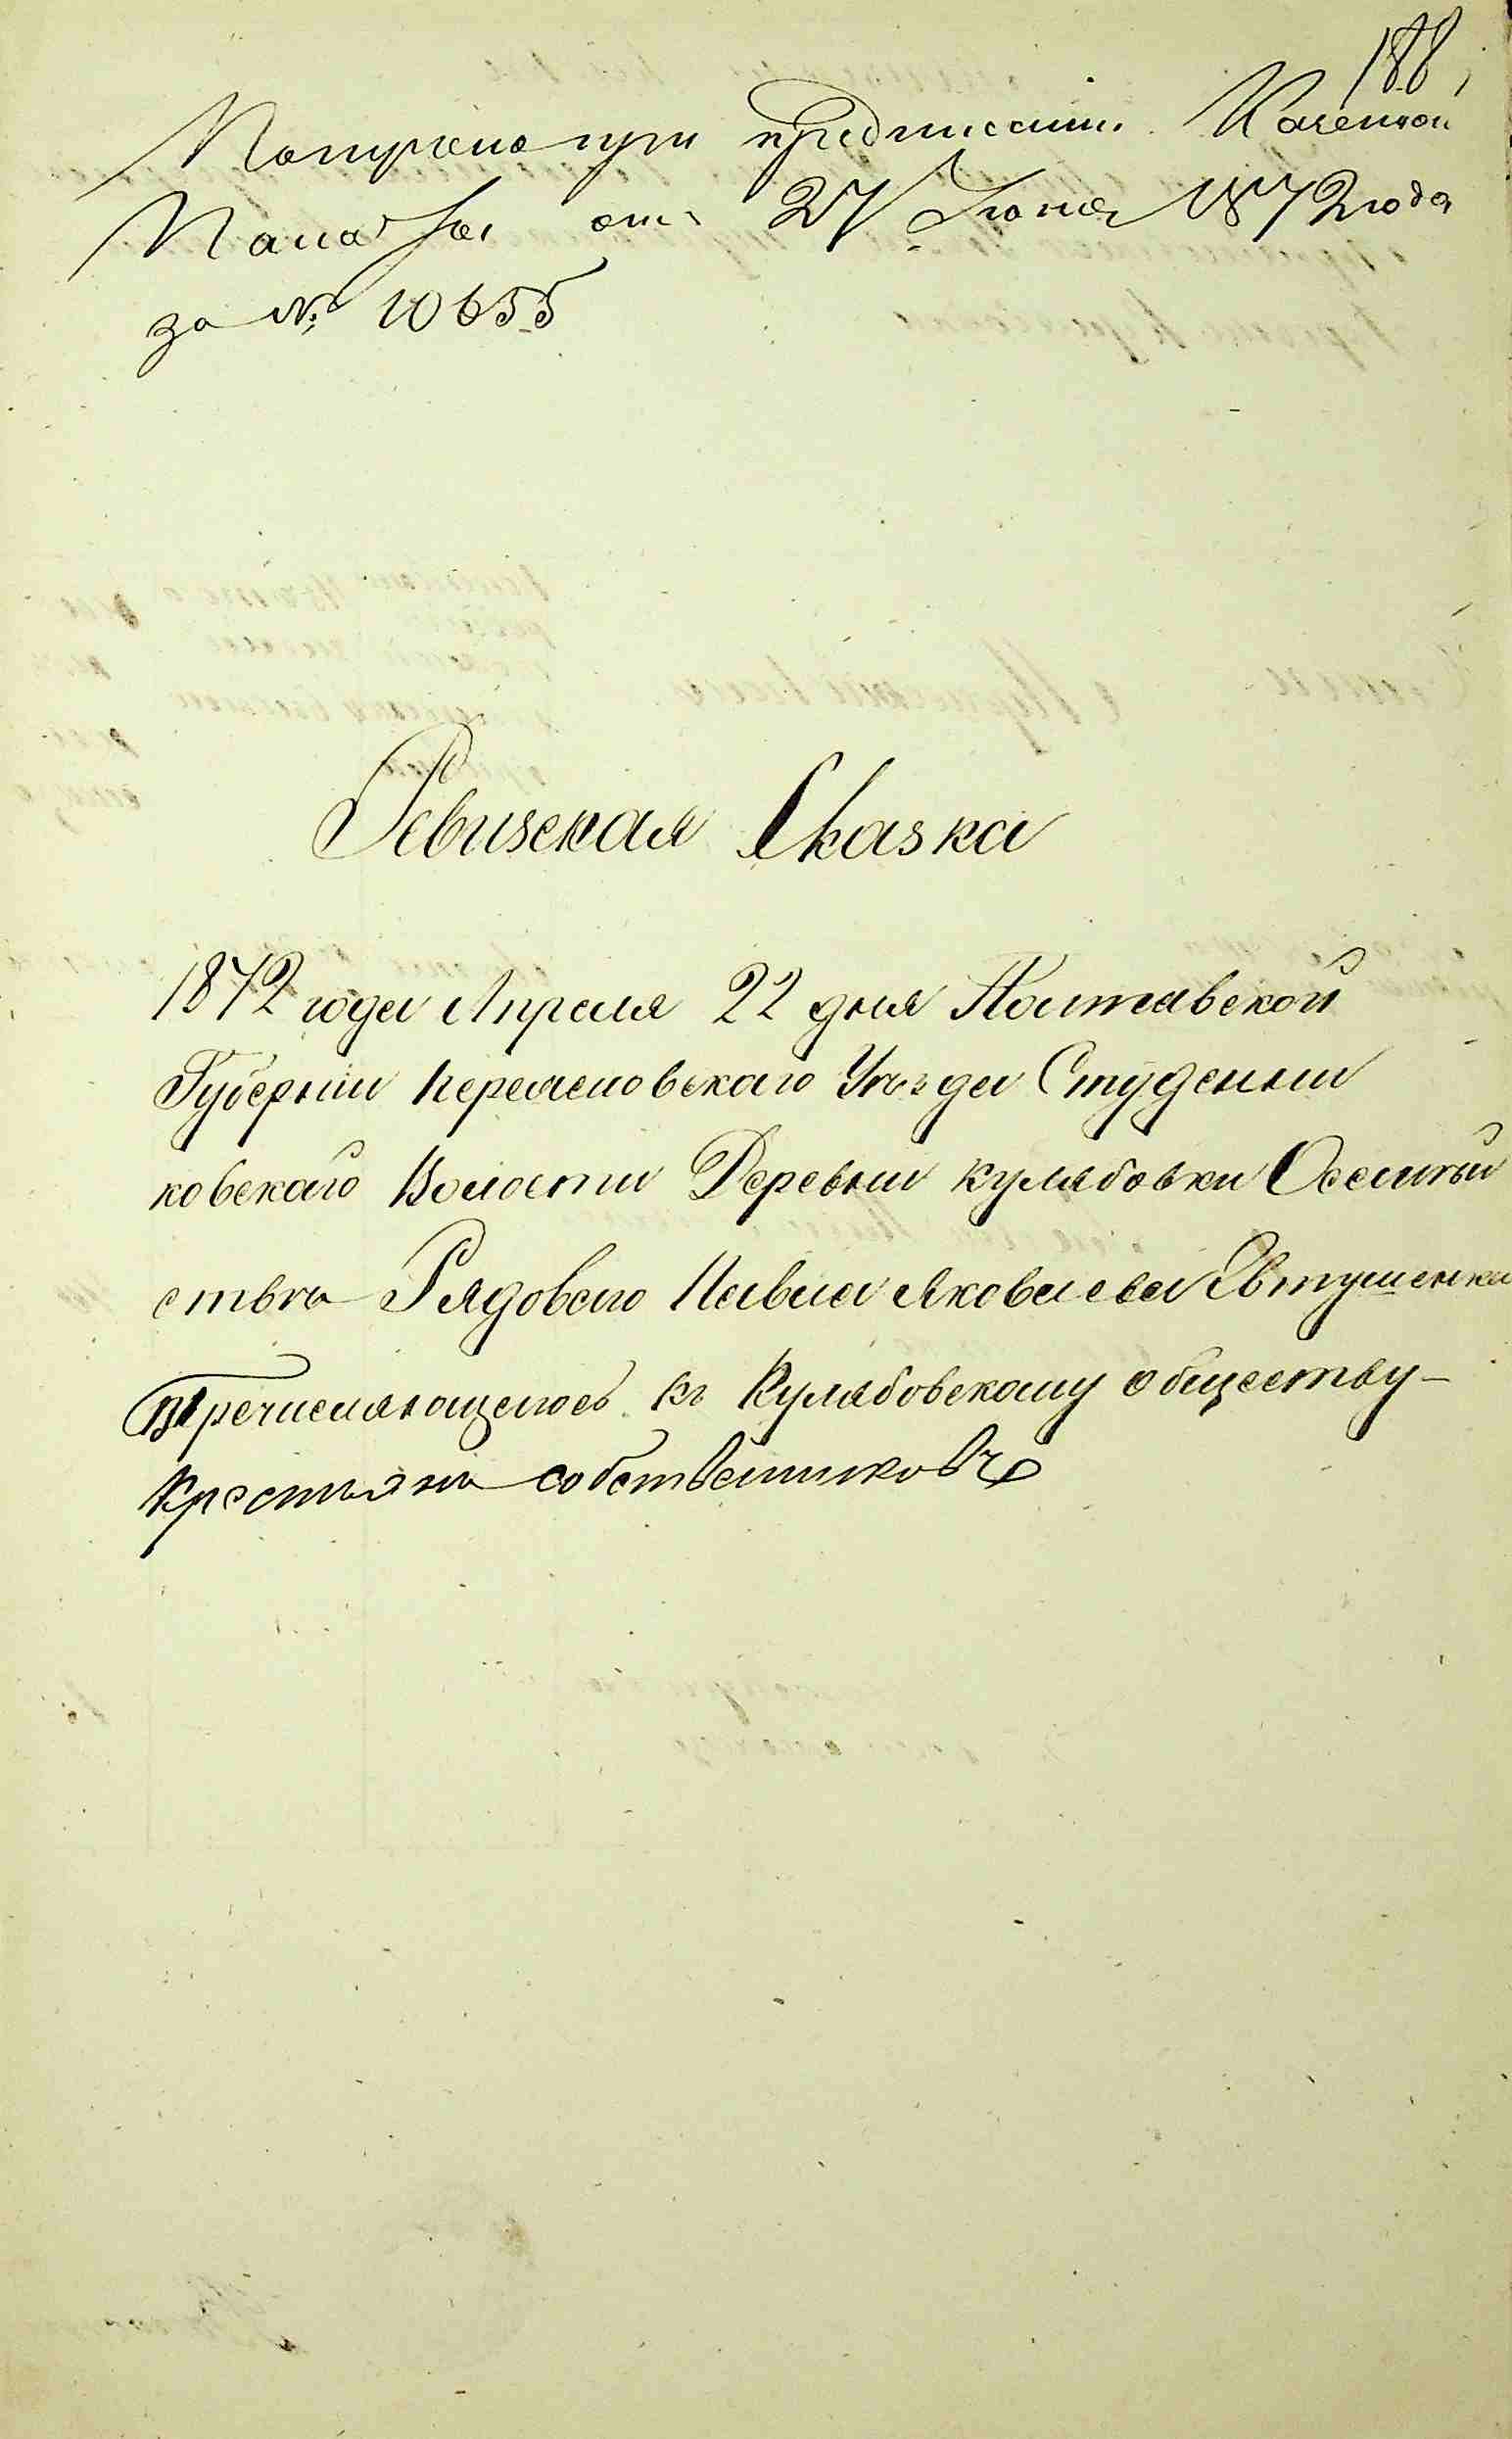 188
Получена при предписании Казенной
Палаты от 27 Июня 1872 года
за № 10655
Ревизская Сказка
1872 года Апреля 22 дня Полтавской
Губернии Переяславскаго Уѣзда Студени
ковскаго Волости Деревни Кулябовки О семей
ствѣ Рядоваго Павла Яковлева Євтушенка
перечисляющегось къ Кулябовскому обществу
Крестьянъ собственниковъ